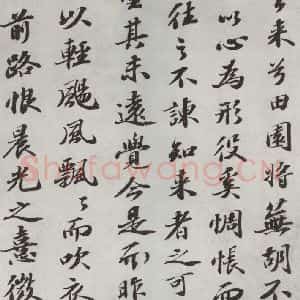 来兮田園将蕪胡不
以心為形役奚惆悵而
往之不諫知来者之可
其未遠覺今是而昨
以輕颺風飄〻而吹衣
前路恨晨光之熹微
Shufawang.CN